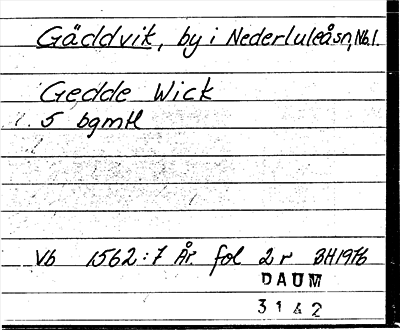 Gäddvik, by i Nederluleåsn, Nb l.
Gedde Wick
5 bgmtl
Vb 1562:7 År fol 2 r BH1976
DAUM
3142